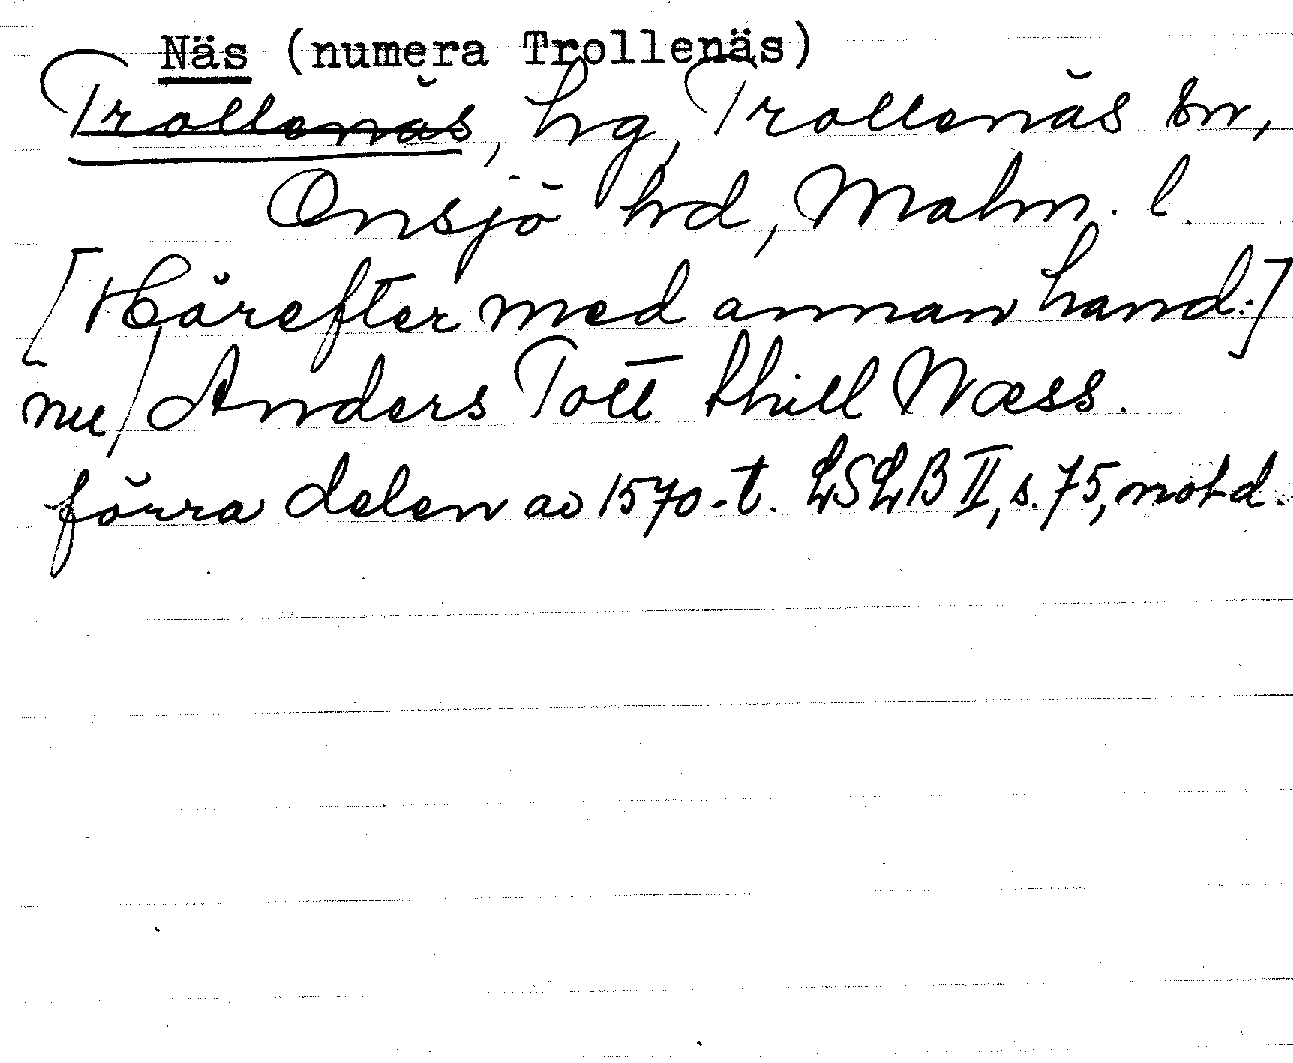 Näs (numera Trollenäs)
Trollenäs, hg, Trollenäs sn,
Onsjö hd, Malm. l.
[Härefter med annan hand:]
nu/ Anders Tott thill Næss.
förra delen av 1570-t. LSLB II, s. 75, not d.